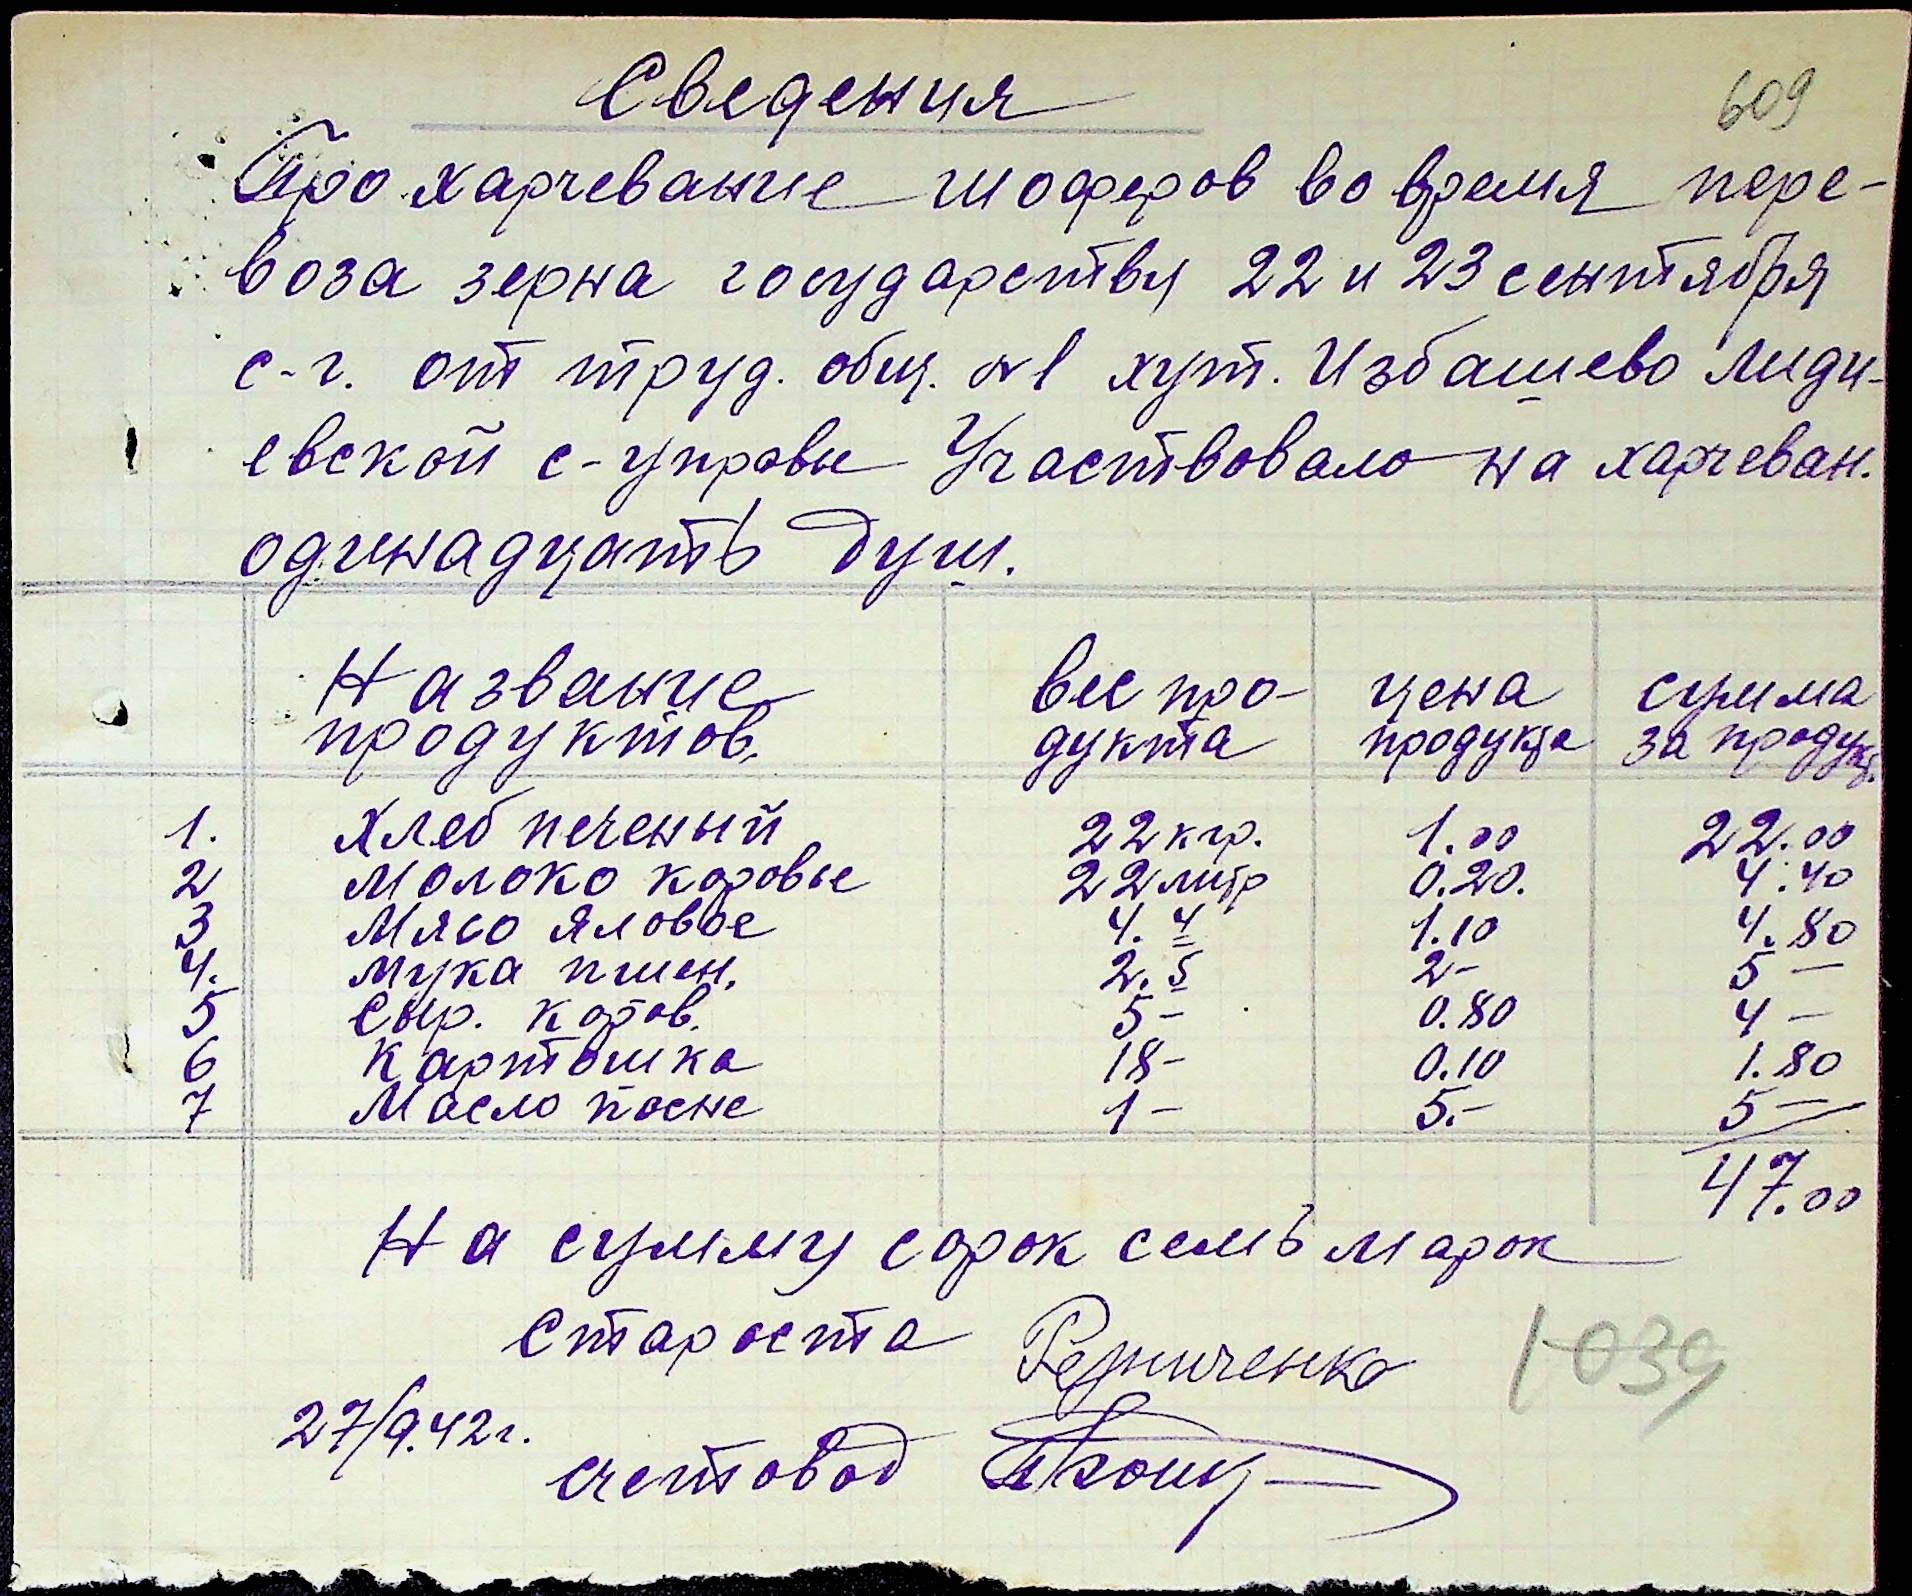 Сведения
609
Про харчевание шоферов во время пере-
воза зерна государству 22 и 23 сентября
с-г. от труд. общ. №1 хут. Избашево Лиди-
евской с-управы Участвовало на харчеван.
одинадцать душ.
Название продуктов. вес про-дукта цена продукта сумма за продукт.
1. Хлеб печеный 22 кгр. 1.00 22.00
2 Молоко коровье 22 литр 0.20. 4.40
3 Мясо яловое 4.4 1.10 4.80
4. Мука пшен. 2.5 2- 5 —
5 Сыр. коров. 5- 0.80 4 —
6 Картошка 18- 0.10 1.80
7 Масло посне 1 — 5.- 5 —
47.00
На сумму сорок семь марок
Староста
1-039
27/9.42г.
счетовод